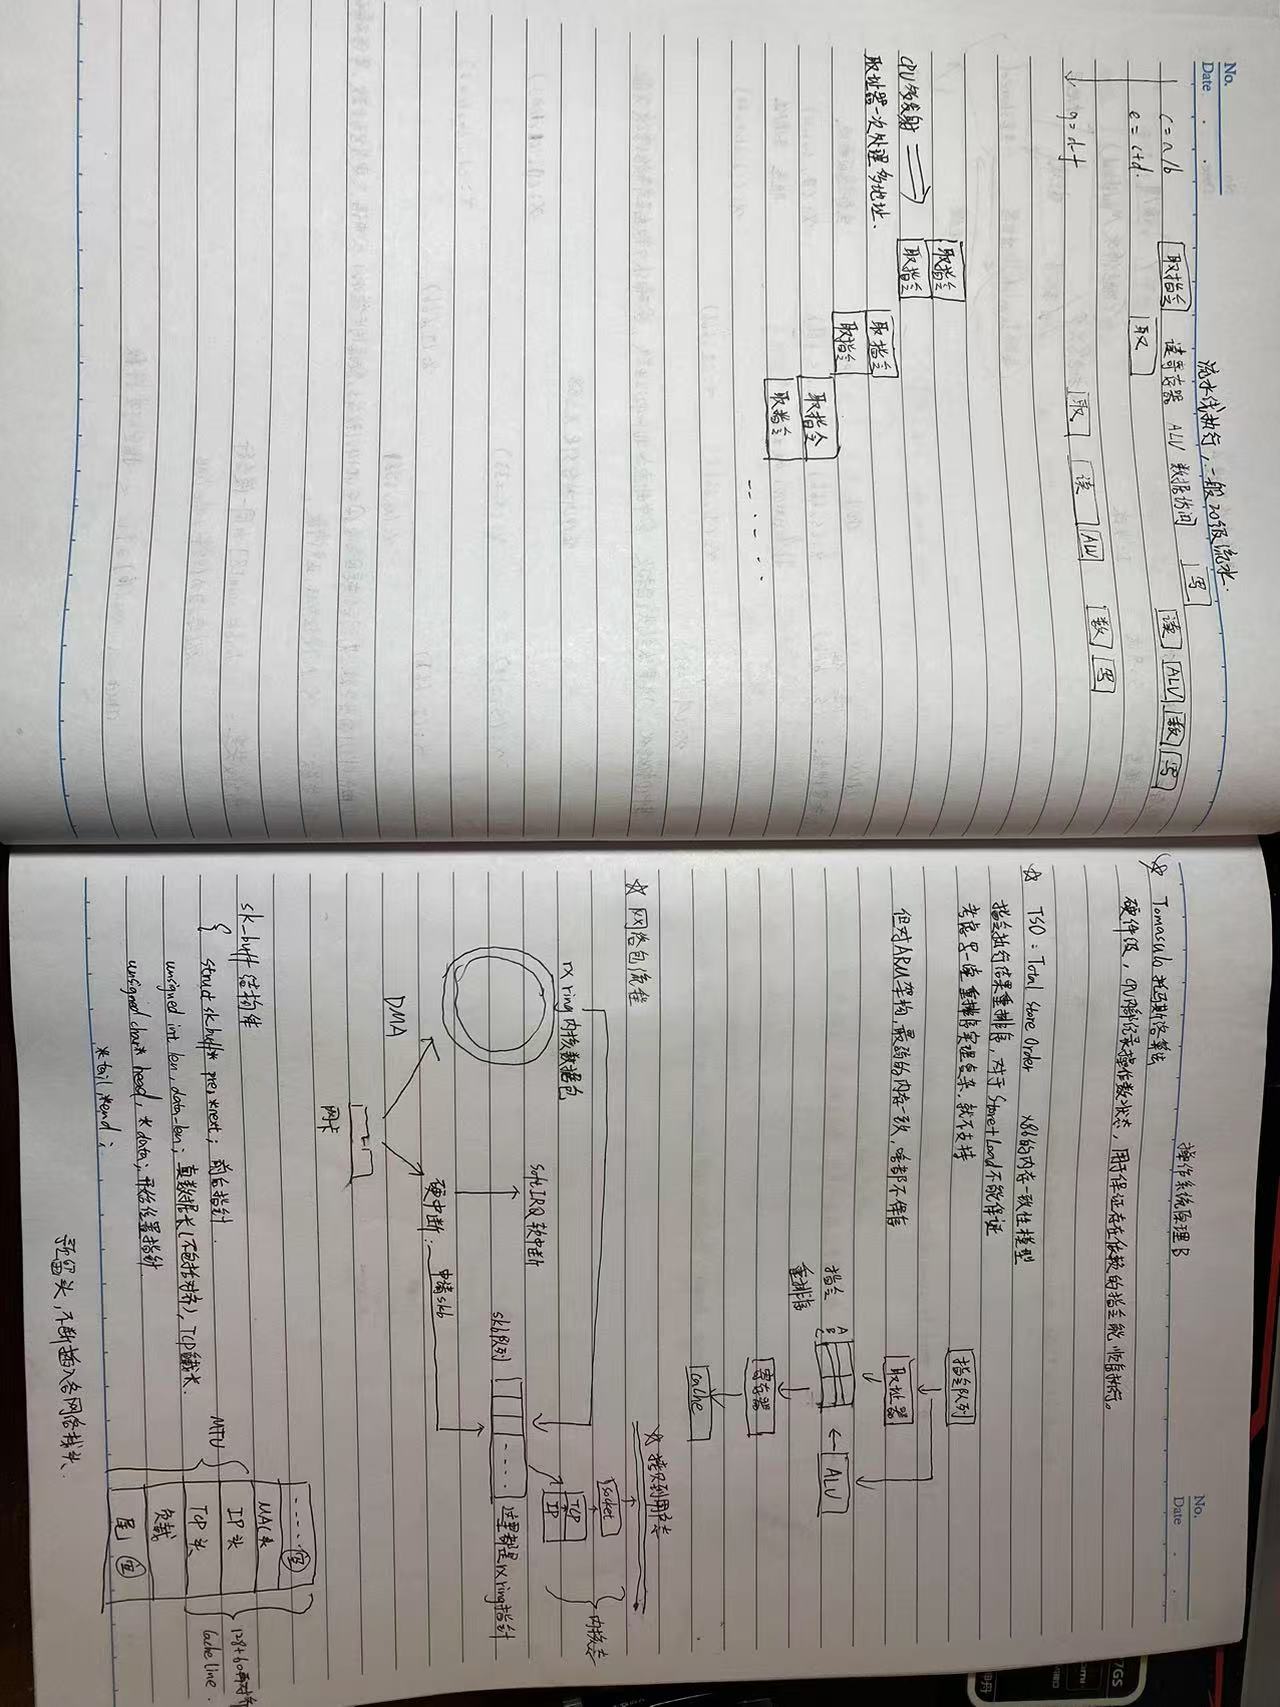 No.
Date
流水线执行,一般20级流水.
c=a/b
取指令 读寄存器 ALU 数据访问 写
读 ALU 数 写
e=c+d.
取
g=d-f
取 读 ALU 数 写
CPU多发射
取指令
取指令
取址器一次处理多地址.
取指令
取指令
取指令
取指令
......
操作系统原理B
No.
Date
☆ Tomasulo 托马斯洛算法
硬件级,CPU内部记录操作数状态,用于保证存在依赖的指令能顺序执行。
☆ TSO:Total Store Order x86的内存一致性模型
指令执行结果重排序,对于Store+Load不能保证
考虑写一读重排序实现复杂,就不支持
但对ARM架构 最弱的内存一致,啥都不保存
指令队列
取址器
ALU
指令
重排序
A
B
C
寄存器
Cache
☆ 网络包流程
☆ 拷贝到用户态
rx ring 内核数据包
socket
TCP
IP
内核态
softIRQ 软中断
skb队列
....
这里都是rx ring指针
DMA
硬中断:
申请skb
网卡
sk_buff 结构体
{ struct sk_buff* prev,*next; 前后指针.
unsigned int len,data_len; 真数据长(不包括对齐),TCP 长.
unsigned char* head,*data; 开始位置指针
*tail,*end;
预留头,不断插入各网络栈头.
.....空
MAC头
IP头
TCP头
负载
尾 空
MTU
128+60再对齐
Cache line.